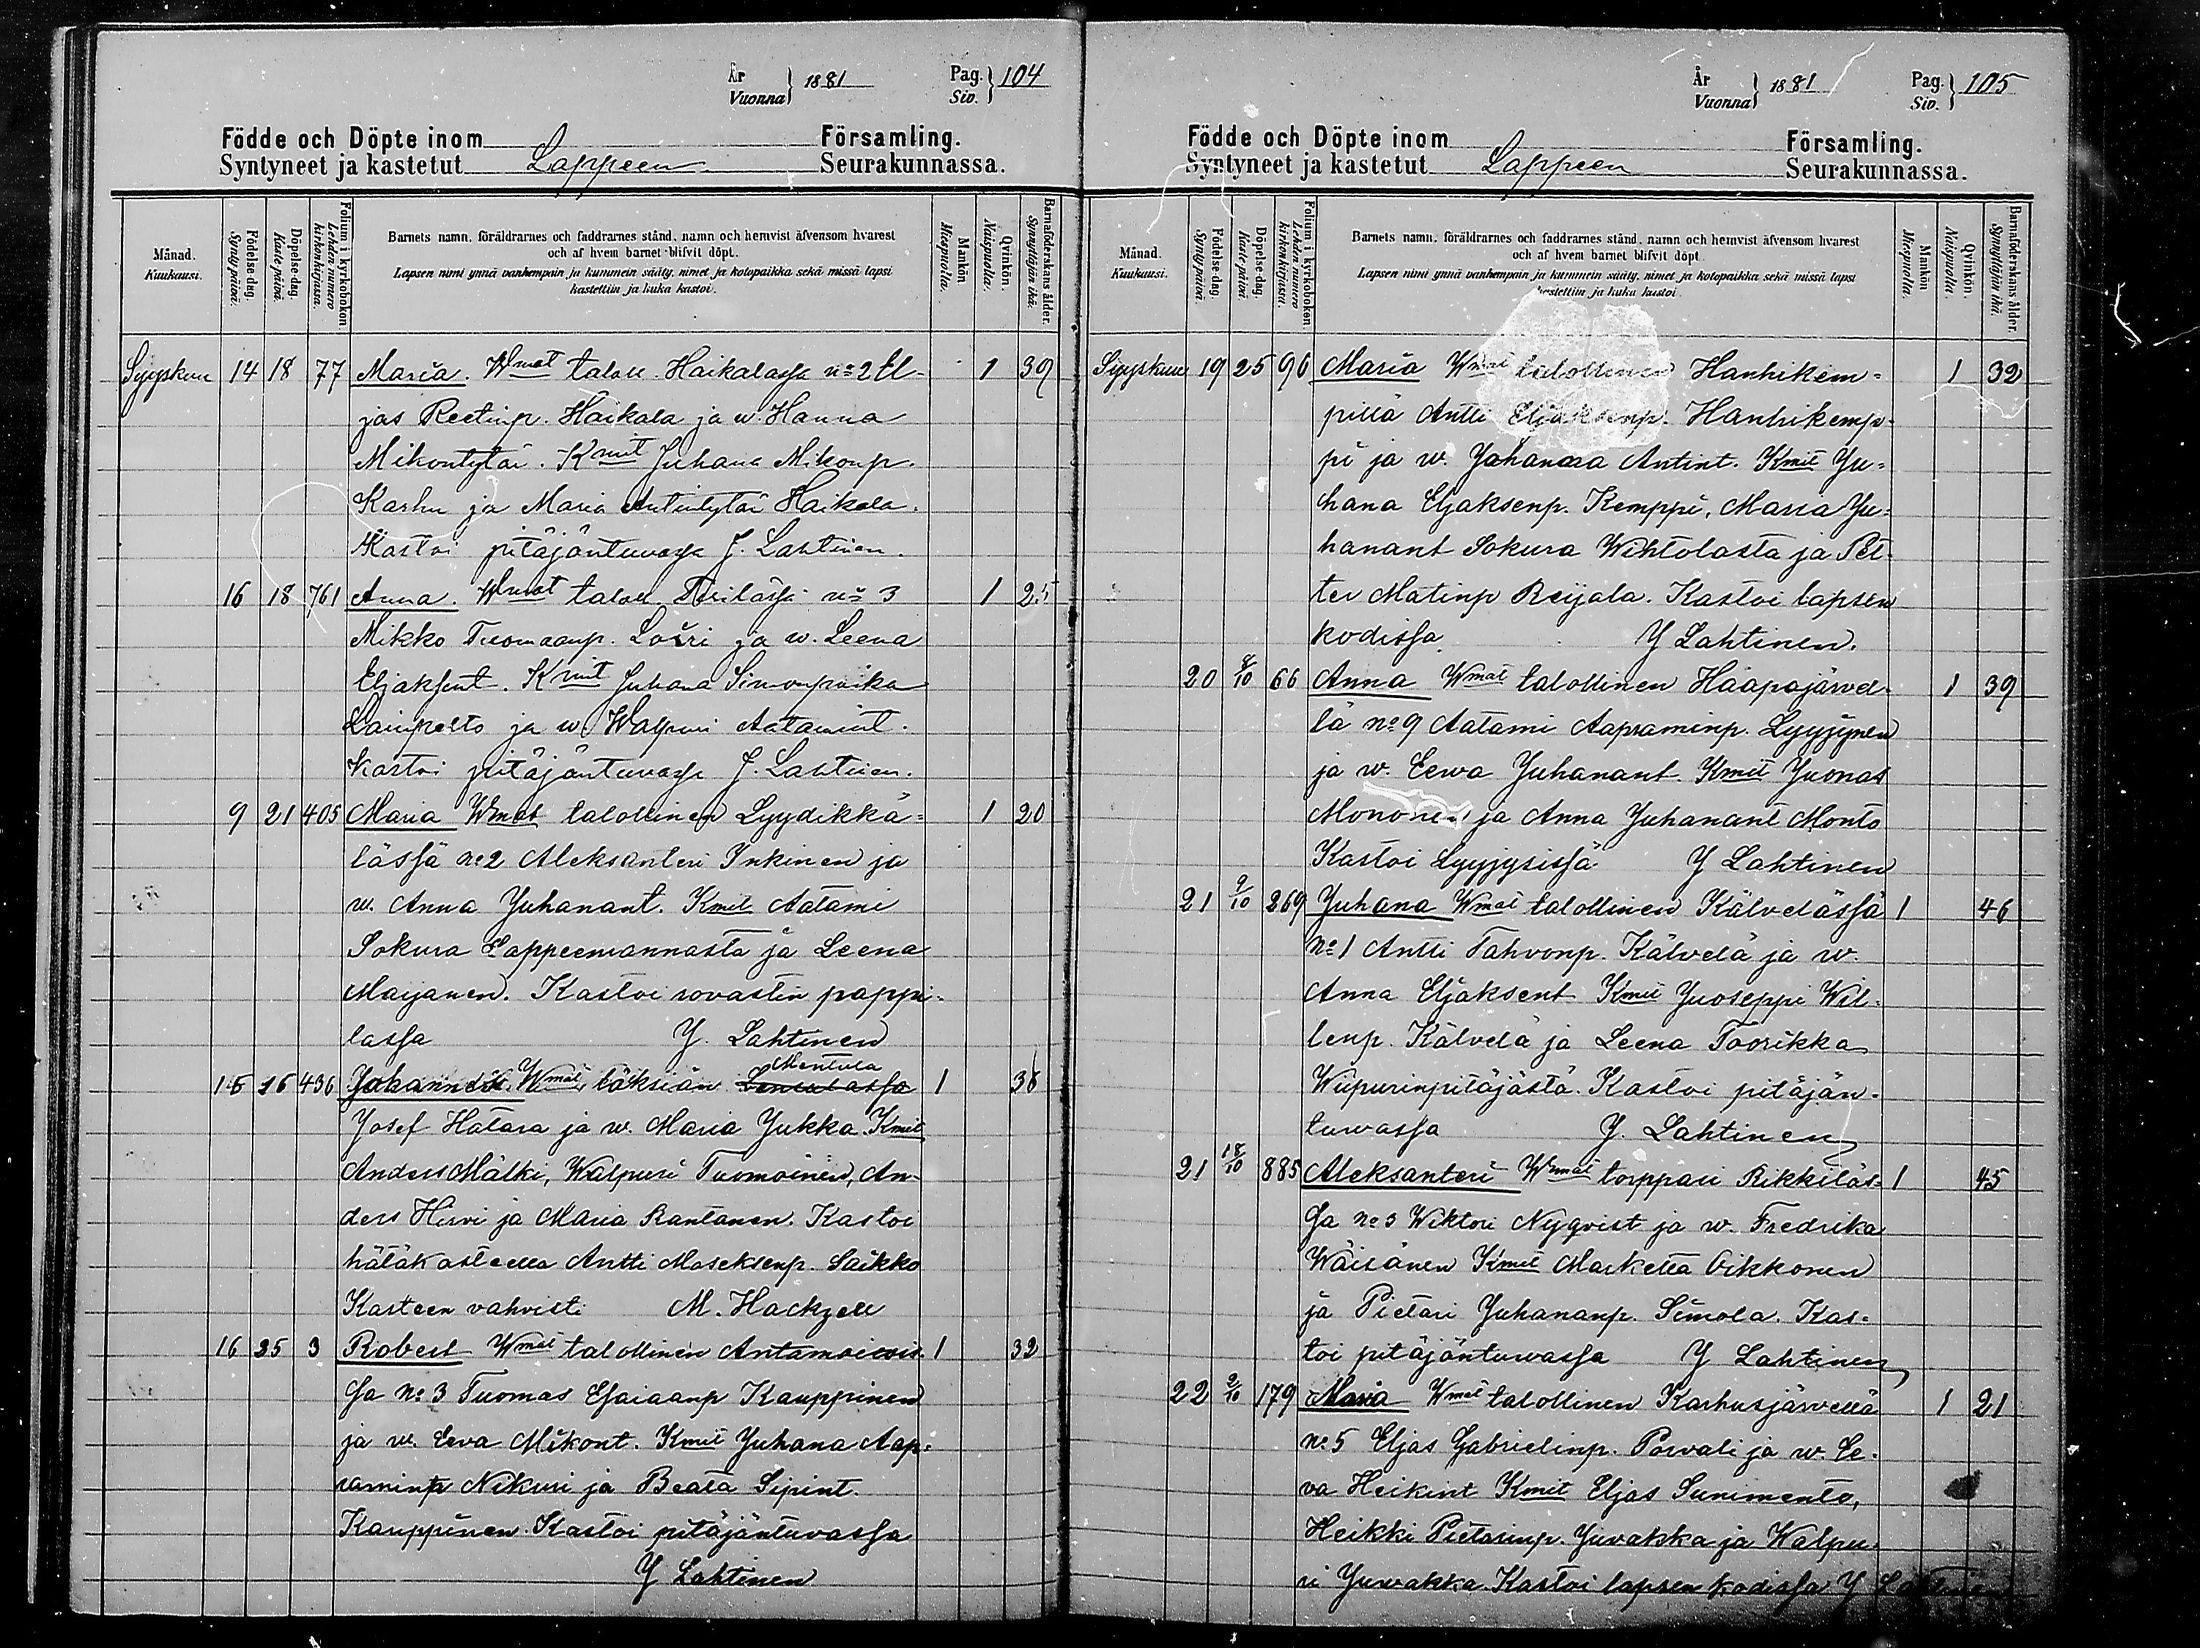 År
Vuonna } 1881
Pag.
Siv. } 104
Födde och Döpte inom Församling.
Syntyneet ja kastetut Lappeen Seurakunnassa.
Månad. Kuukausi.
Födelse-dag. Syntypäivä.
Döpelse-dag. Kastepäivä.
Folium i kyrkobokon. Lehden numero kirkonkirjassa.
Barnets namn, föräldrarnes och faddrarnes stånd, namn och hemvist äfvensom hvarest
och af hvem barnet blifvit döpt.
Lapsen nimi ynnä vanhempain ja kummein sääty, nimet ja kotopaikka sekä missä lapsi
kastettiin ja kuka kastoi.
Mankön. Miespuolia.
Qvinkön. Naispuolia.
Barnaföderskans ålder. Synnyttäjän ikä.
Syyskuu 14 18 77 Maria. Wmat talon. Haikalassa no 2 El- 1 39
jas Reetinp. Haikala ja w. Hanna
Mikontytär. Kmit Juhana Mikonp.
Karhu ja Maria Antintytär Haikala.
Kastoi pitäjäntuvassa J. Lahtinen.
16 18 761 Anna. Wmat talon no 3 1 25
Mikko Tuomaanp. ja w. Leena
Eljaksent. Kmit Juhana Simonpoika
ja w Walpuri Aatamint.
Kastoi pitäjäntuvassa J. Lahtinen.
9 21 405 Maria Wmat talollinen Lyydikkä- 1 20
lässä no 2 Aleksanteri Inkinen ja
w. Anna Juhanant. Kmit Aatami
Sokura Lappeemannasta ja Leena
Maijanen. Kastoi rovastin pappi-
lassa Y. Lahtinen
15 16 436 Johannes. Wmat. läksiän Mentula 1 36
Josef Hatara ja w. Maria Jukka. Kmit
Anders Mälki, Walpuri Tuomoinen, An-
ders Hirvi ja Maria Rantanen. Kastoi
hätäkasteella Antti Moseksenp. Saikko
Kasteen vahvisti M. Hackzell
16 25 3 Robert Wmat talollinen Antamoiwis- 1 32
sa No 3 Tuomas Esaiaanp Kauppinen
ja w. Eeva Mikont. Kmit Juhana Aap-
raminp Nikuri ja Beata Sipint.
Kauppinen. Kastoi pitäjäntuvassa
Y Lahtinen
År
Vuonna } 1881
Pag.
Siv. } 105
Födde och Döpte inom Församling.
Syntyneet ja kastetut Lappeen Seurakunnassa.
Månad. Kuukausi.
Födelse-dag. Syntypäivä.
Döpelse-dag. Kastepäivä.
Folium i kyrkobokon. Lehden numero kirkonkirjassa.
Barnets namn, föräldrarnes och faddrarnes stånd, namn och hemvist äfvensom hvarest
och af hvem barnet blifvit döpt.
Lapsen nimi ynnä vanhempain ja kummein sääty, nimet ja kotopaikka sekä missä lapsi
kastettiin ja kuka kastoi.
Mankön. Miespuolia.
Qvinkön. Naispuolia.
Barnaföderskans ålder. Synnyttäjän ikä.
Syyskuu 19 25 96 Maria Wmat talollinen Hanhikem- 1 32
pillä Antti Eljaksenp. Hanhikemp-
pi ja w. Johanna Antint. Kmit Ju-
hana Eljaksenp. Kemppi, Maria Ju-
hanant Sokura Wihtolasta ja Pet-
ter Matinp Reijala. Kastoi lapsen
kodissa. Y Lahtinen.
20 8/10 66 Anna Wmat talollinen Haapajärvel- 1 39
lä no 9 Aatami Aapraminp. Lyyjynen
ja w. Eewa Juhanant. Kmit Juonas
Mononen ja Anna Juhanant Monto
Kastoi Lyyjysissä Y Lahtinen
21 9/10 269 Juhana Wmat talollinen Kälvelässä 1 46
No 1 Antti Tahvonp. Kälvelä ja w.
Anna Eljaksent Kmit Juoseppi Wil-
lenp. Kälvelä ja Leena Toorikka
Wiipurinpitäjästä. Kastoi pitäjän-
tuwassa Y. Lahtinen
21 18/10 885 Aleksanteri Wmat torppari Rikkiläs- 1 45
sa No 3 Wiktori Nyqvist ja w. Fredrika
Wäisänen Kmit Marketta Oikkonen
ja Pietari Juhananp. Simola. Kas-
toi pitäjäntuwassa Y Lahtinen
22 2/10 179 Maria Wmat talollinen Karhusjärvellä 1 21
No 5 Eljas Gabrielinp. Porvali ja w. Ee-
va Heikint Kmit Eljas Sunimento,
Heikki Pietarinp. Juvakka ja Walpu-
ri Juvakka. Kastoi lapsen kodissa Y Lahtinen